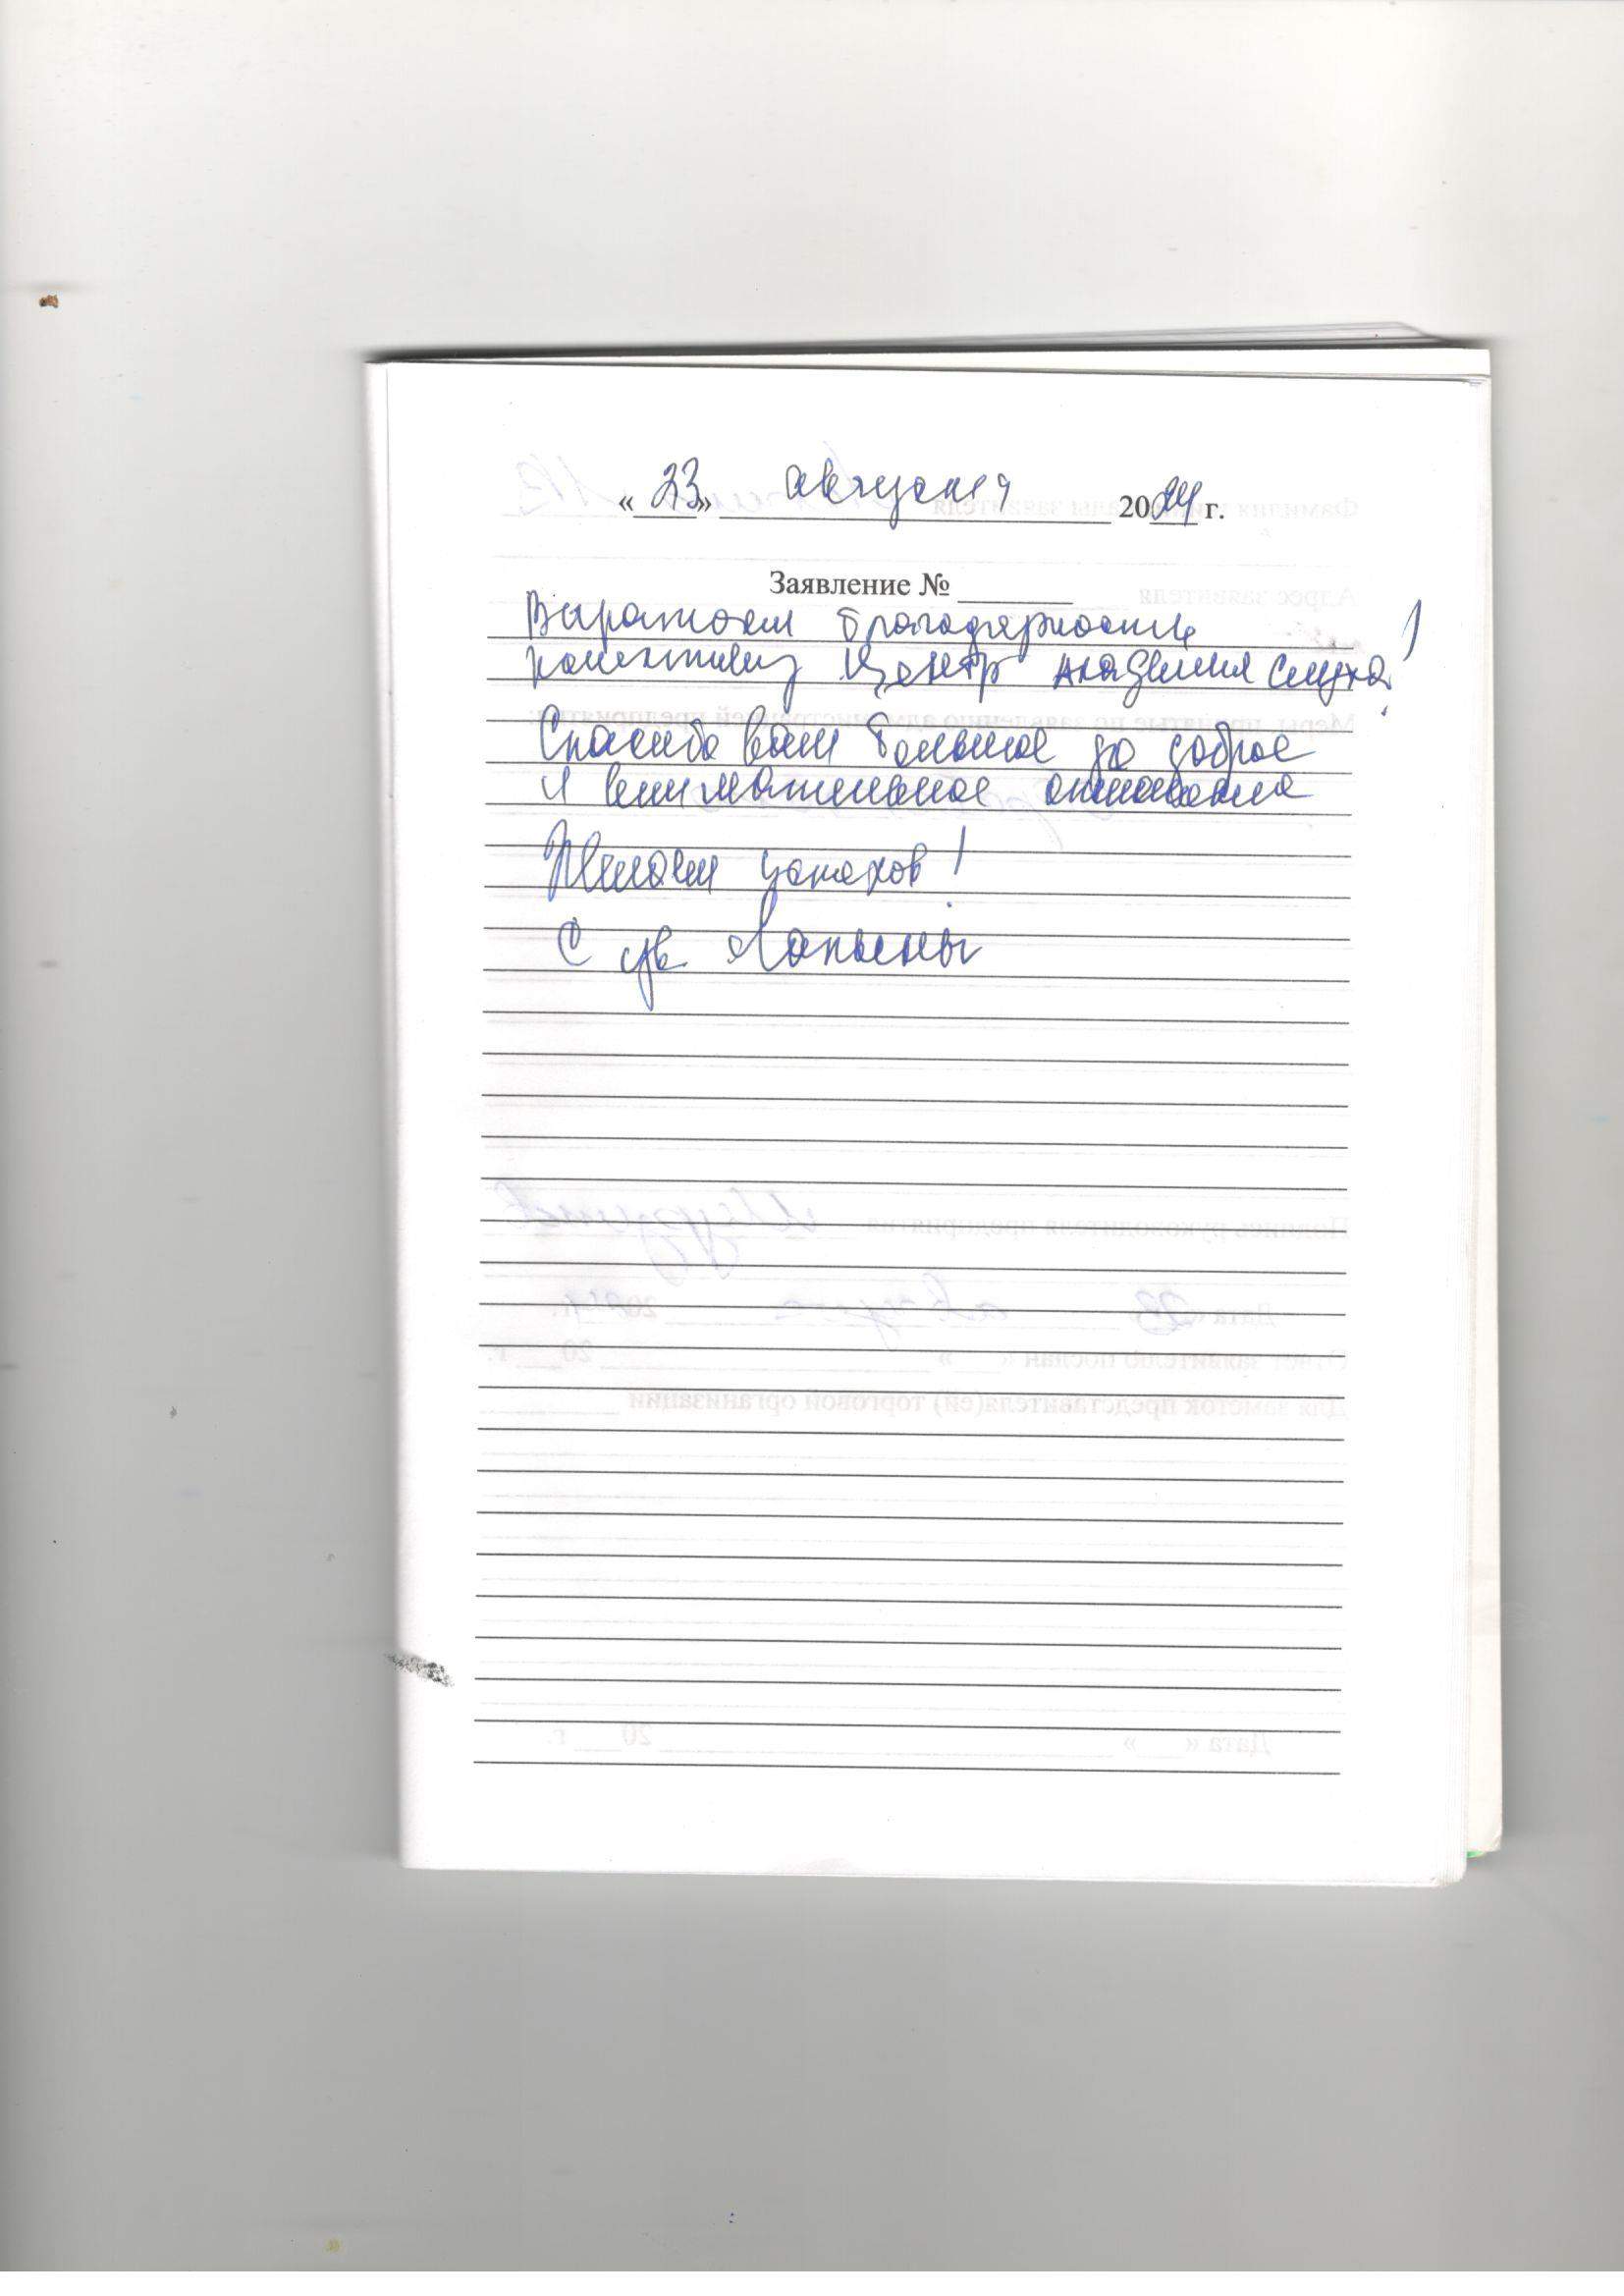 «23» августа 2024 г.
Заявление №
Выражаем благодарность
коллективу Центр Академия Слуха!
Спасибо вам большое за доброе
и внимательное отношение
Желаем успехов!
С ув.